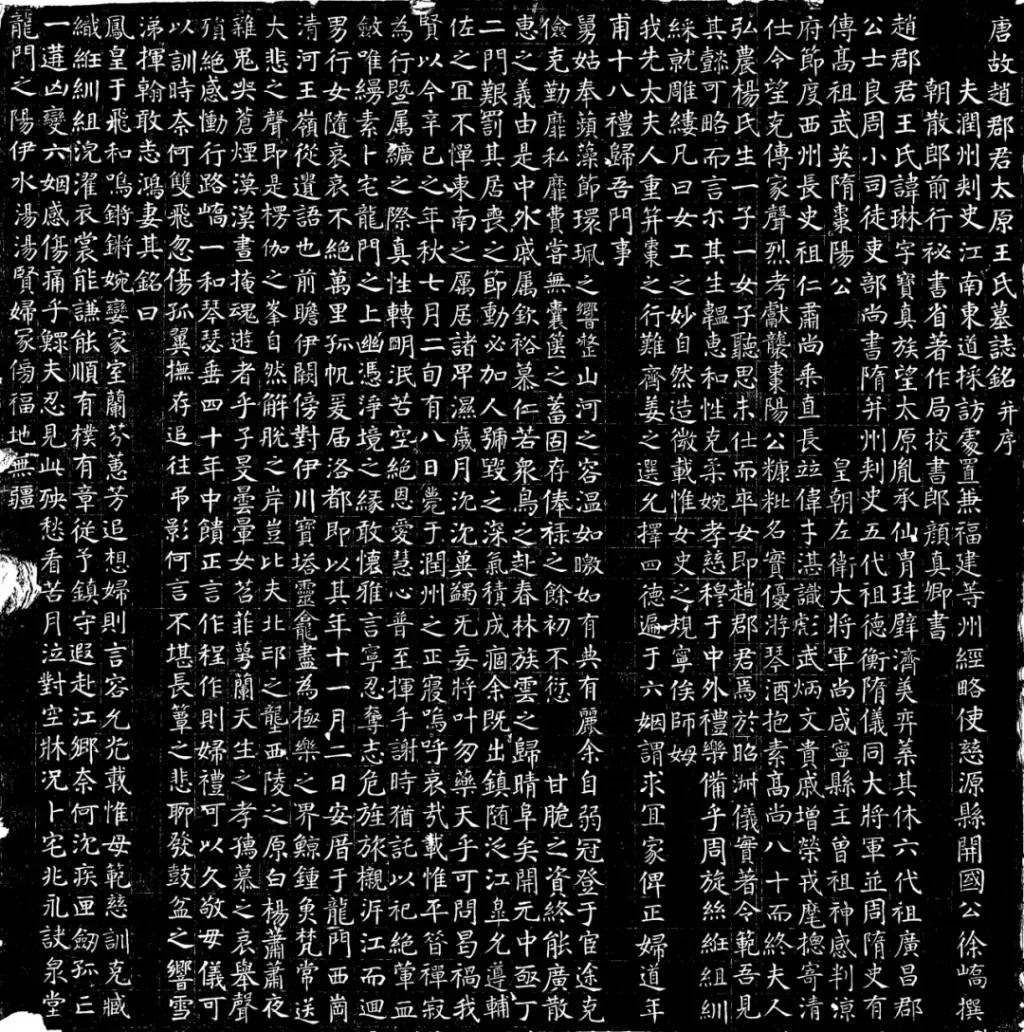 唐故趙郡君太原王氏墓誌銘并序
夫潤州刾史江南東道採訪處置兼福建等州經略使慈源縣開國公徐嶠撰
朝散郎前行祕書省著作局挍書郎顔真卿書
趙郡君王氏諱琳字寶真族望太原胤承仙胄珪璧濟美弈葉其休六代祖廣昌郡
公士良周小司徒吏部尚書隋并州刾史五代祖德衡隋儀同大將軍並周隋史有
傳髙祖武英隋棗陽公 皇朝左衛大將軍尚咸寧縣主曽祖神感判涼
府節度西州長史祖仁肅尚乘直長竝偉才湛識彪武炳文貴戚增榮戎麾揔寄清
仕令望克傳家聲烈考獻襲棗陽公糠粃名實優游琴酒抱素髙尚八十而終夫人
弘農楊氏生一子一女子聽思未仕而卒女即趙郡君焉於昭淋儀實著令範吾見
其懿可略而言尔其生韞惠和性克柔婉孝慈穆于中外禮樂備乎周旋絲絍組紃
綵就雕縷凡曰女工之妙自然造微載惟女史之規寧俟師姆
我先太夫人重笄棗之行難齊姜之選允擇四德遍于六姻謂求宜家俾正婦道年
甫十八禮歸吾門事
舅姑奉蘋藻節環珮之響整山河之容温如暾如有典有麗余自弱冠登于宦途克
儉克勤靡私靡費甞無囊篋之蓄固存俸禄之餘初不愆 甘脆之資終能廣散
惠之義由是中外戚属欽裕慕仁若衆鳥之赴春林族雲之歸晴阜矣開元中亟丁
二門艱罰其居喪之節動必加人號毀之深氣積成痼余既出鎮随泛江皐允遵輔
佐之宜不憚東南之厲居諸早濕歲月沈沈兾蠲无妄將叶勿藥天乎可問曷禍我
賢以今辛巳之年秋七月二旬有八日薨于潤州之正寢嗚呼哀㦲載惟平昝禪寂
為行暨属纊之際真性轉明泯苦空絶恩愛慧心普至揮手謝時猶託以祀絶葷血
斂唯縵素卜宅龍門之上幽憑淨境之緣敢懷雅言寧忍奪志危旌旅櫬泝江而迴
男行女隨哀哀不絶萬里孤帆爰届洛都即以其年十一月二日安厝于龍門西崗
清河王嶺從遺語也前瞻伊闕傍對伊川寶塔靈龕盡為極樂之界鯨鍾魚梵常送
大悲之聲即是楞伽之峯自然解脫之岸豈比夫北邙之壟西陵之原白楊蕭蕭夜
雞鬼哭蒼煙漠漠晝掩魂遊者乎子旻雲暈女苕菲蕚蘭天生之孝孺慕之哀舉聲
殞絶感慟行路嶠一和琴瑟垂四十年中饋正言作程作則婦禮可以久敬母儀可
以訓時奈何雙飛忽傷孤翼撫存追往弔影何言不堪長簟之悲聊發鼓盆之響雪
涕揮翰敢志鴻妻其銘曰
鳳皇于飛和鳴鏘鏘婉孌家室蘭芬蕙芳追想婦則言容允光載惟母範慈訓克臧
織絍紃組浣濯衣裳能謙能順有樸有章從予鎮守遐赴江鄉奈何沈疾匣劒孤亡
一遘凶變六姻感傷痛乎鰥夫忍見此殃愁看苦月泣對空牀况卜宅兆永訣泉堂
龍門之陽伊水湯湯賢婦冢傷福地無疆